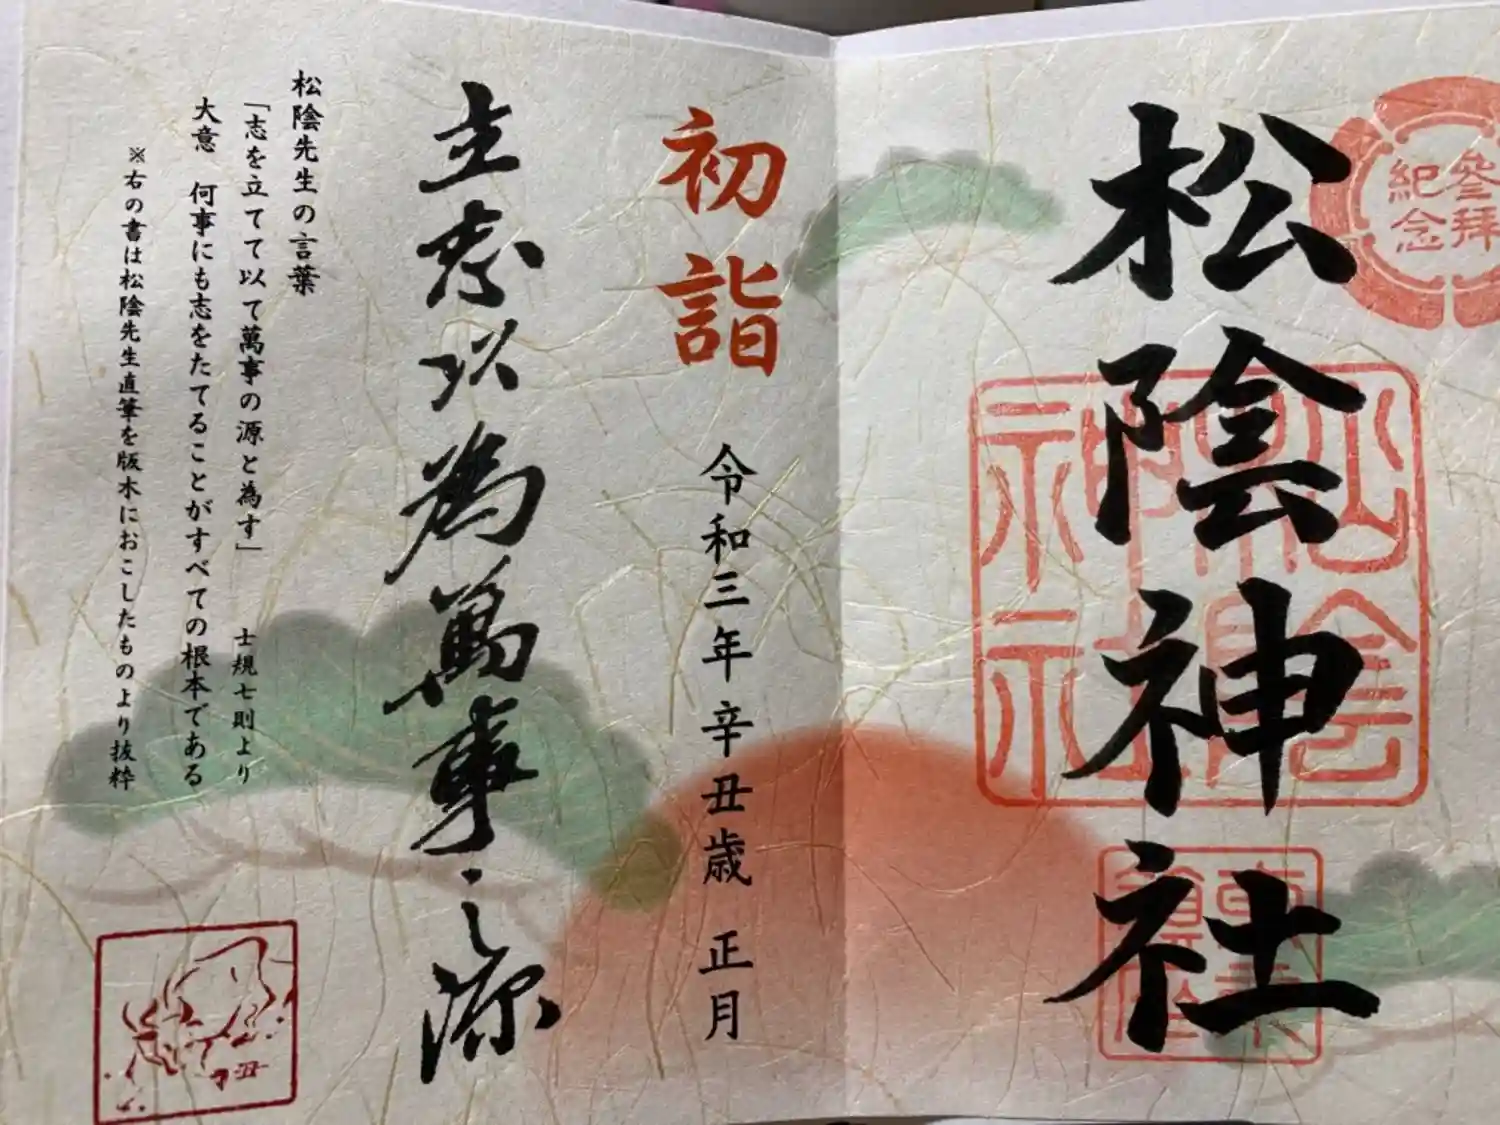 參拜
紀念
松陰神社
松陰
神社
初詣
令和三年 辛丑歳 正月
立志以為萬事之源
松陰先生の言葉
「志を立てて以て萬事の源と為す」 士規七則より
大意 何事にも志をたてることがすべての根本である
※右の書は松陰先生直筆を版木におこしたものより抜粋
丑